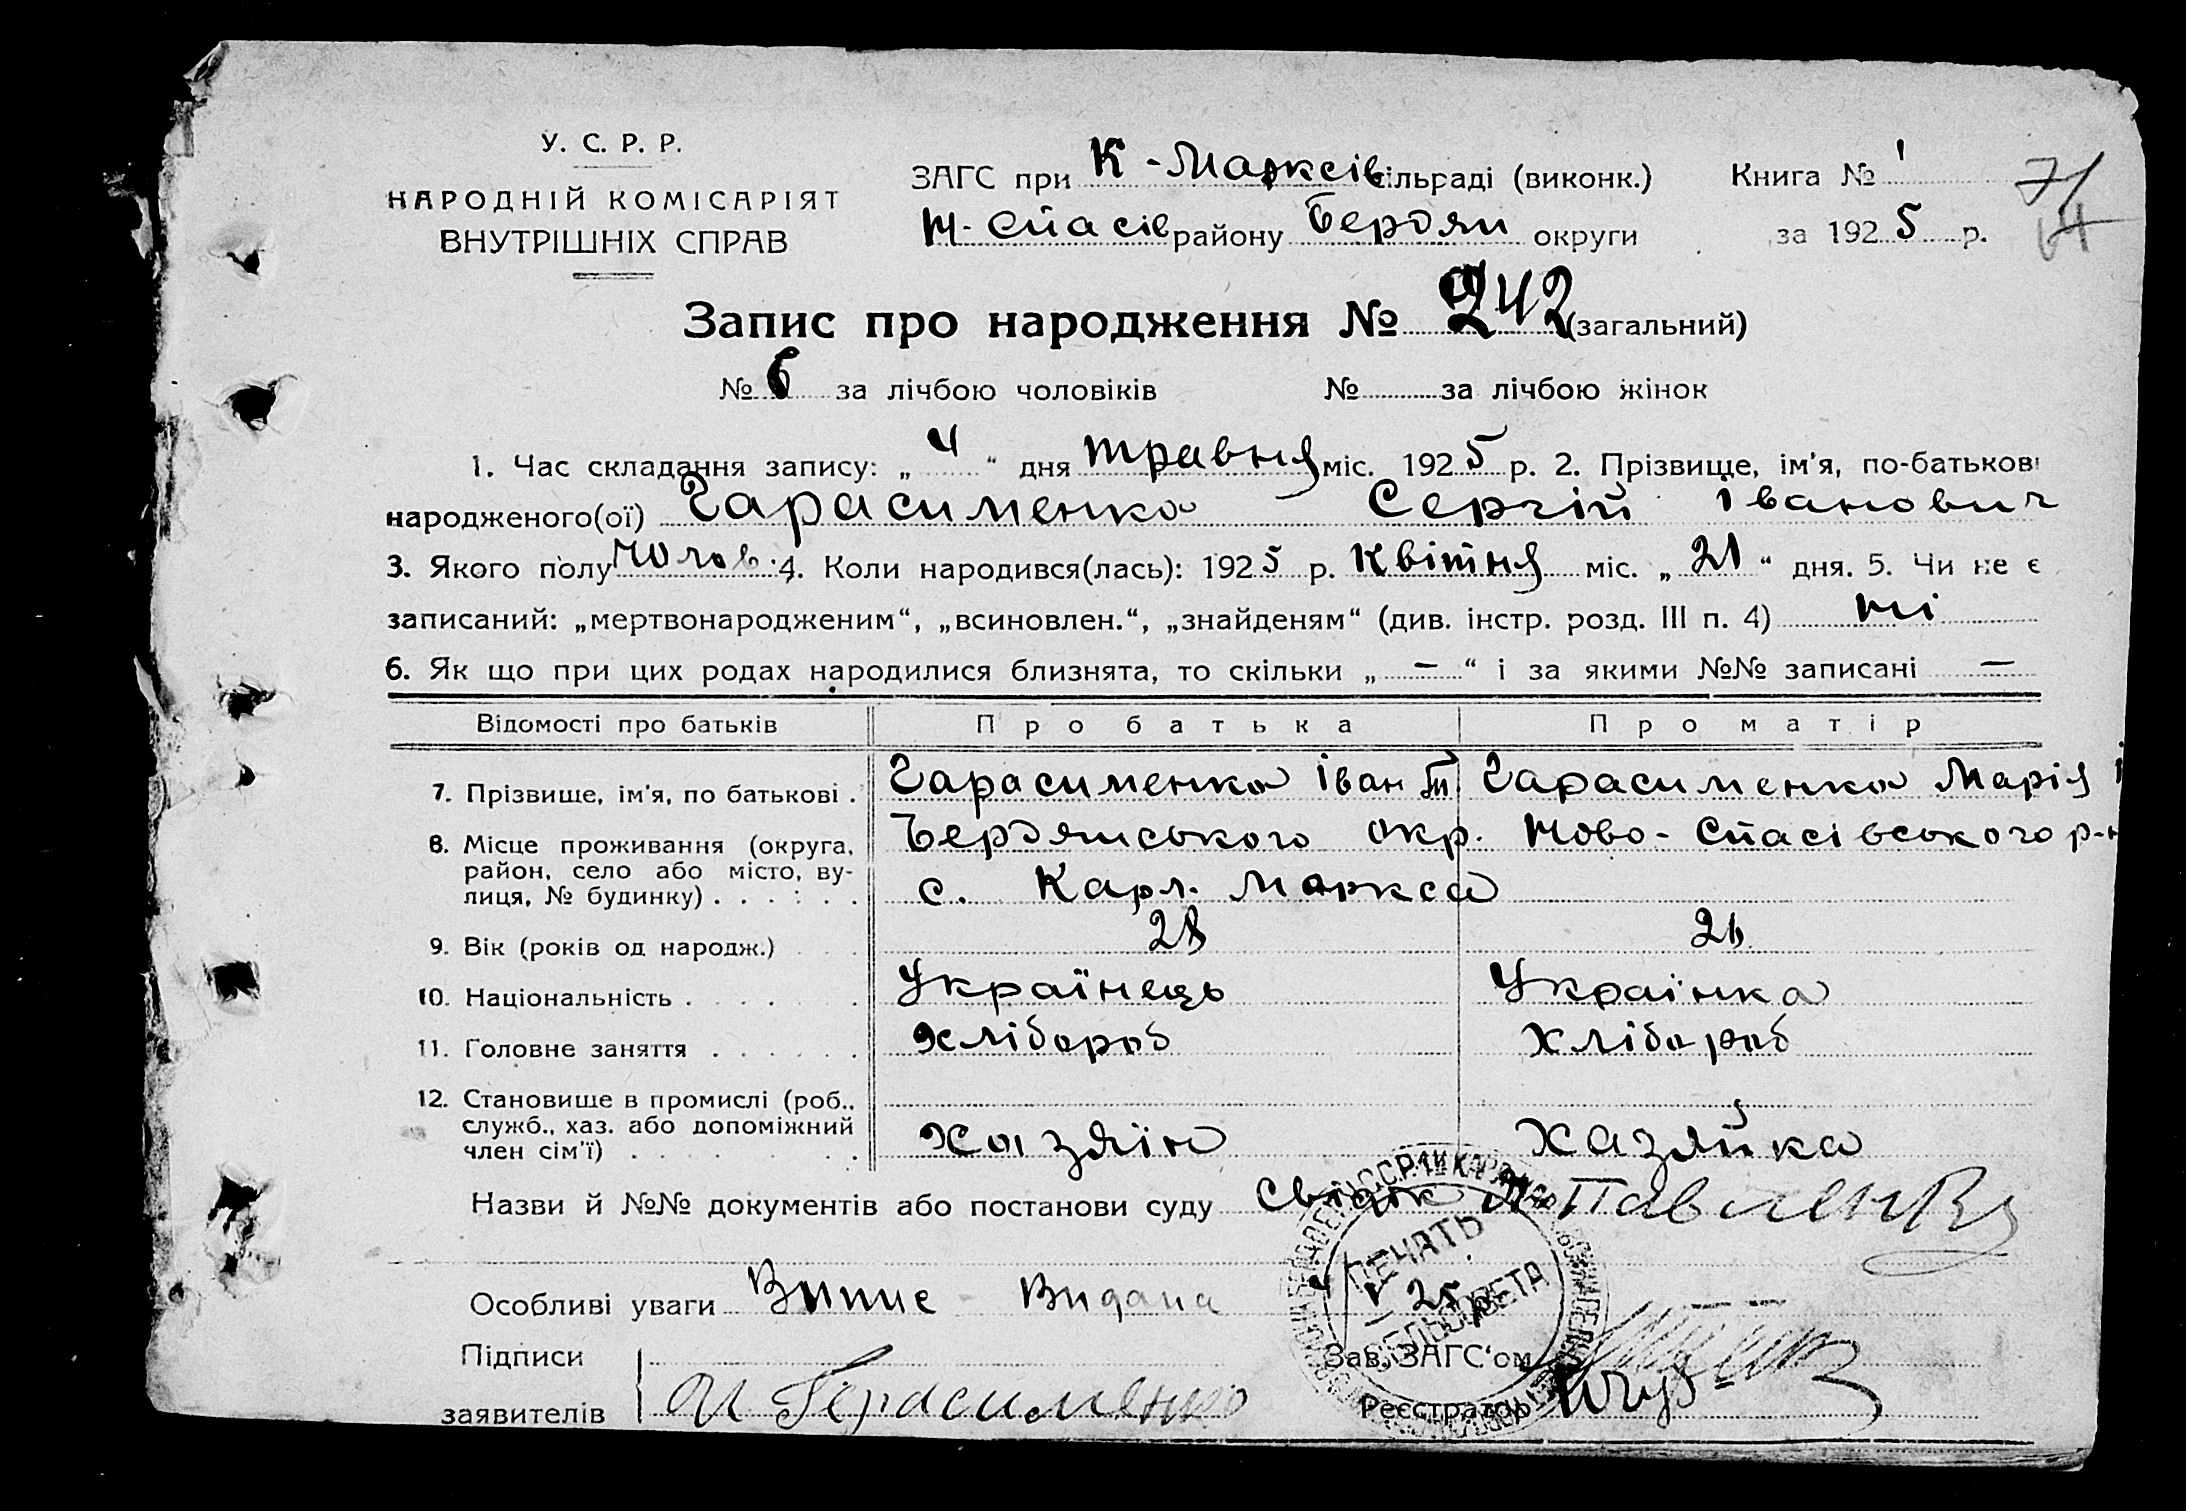 У. С. Р. Р.
НАРОДНІЙ КОМІСАРІЯТ
ВНУТРІШНІХ СПРАВ
ЗАГС при К-Марксів сільраді (виконк.) Книга № 1
Н-Спасів району Бердян округи за 1925 р.
71
Запис про народження № 242 (загальний)
№ 6 за лічбою чоловіків № за лічбою жінок
1. Час складання запису: „4“ дня травня міс. 1925 р. 2. Прізвище, ім’я, по-батькові
народженого(ої) Гарасименко Сергій Іванович
3. Якого полу чолов. 4. Коли народився(лась): 1925 р. Квітня міс. „21“ дня. 5. Чи не є
записаний: „мертвонародженим“, „всиновлен.“, „знайденям“ (див. інстр. розд. III п. 4) ні
6. Як що при цих родах народилися близнята, то скільки „—“ і за якими №№ записані —
Відомості про батьків Про батька Про матір
7. Прізвище, ім’я, по батькові . Гарасименко Іван Гарасименко Марія І
8. Місце проживання (округа, район, село або місто, вулиця, № будинку) Бердянського окр. Ново-Спасівського р-н
с. Карл. Маркса
9. Вік (років од народж.) 28 26
10. Національність Українець Українка
11. Головне заняття Хлібороб Хлібороб
12. Становище в промислі (роб., служб., хаз. або допоміжний член сім’ї) Хазяїн Хазяйка
Назви й №№ документів або постанови суду Свідок Павленко
Особливі уваги Випис Видана 4/V 25 р.
ПЕЧАТЬ
СЕЛЬСОВЕТА
Підписи
заявителів И Герасименко
Зав. ЗАГС‘ом
Реєстратор